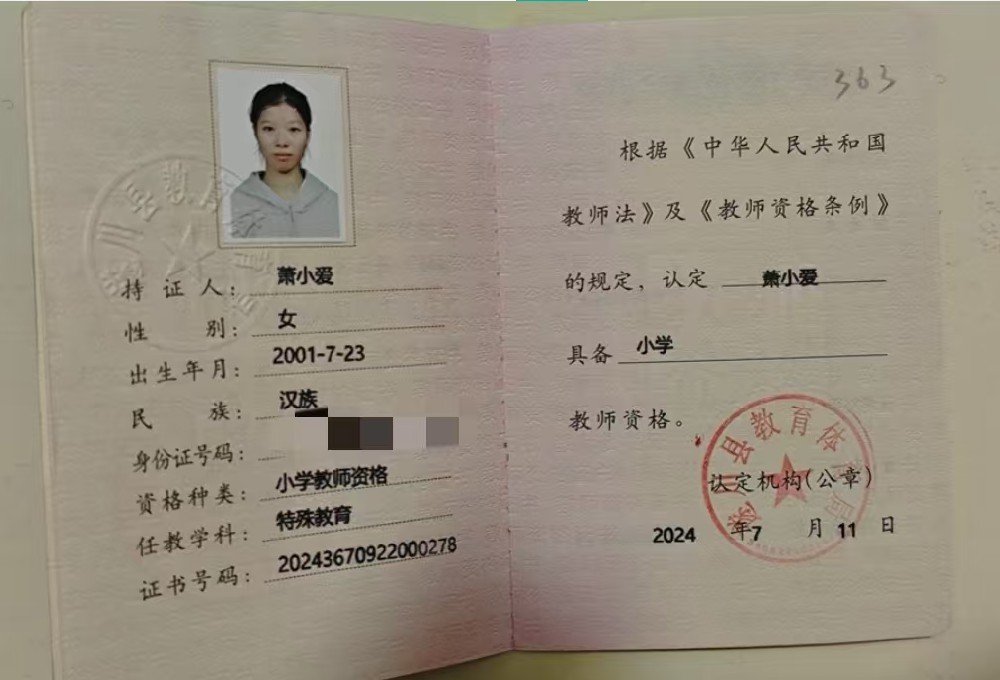 持证人：萧小爱
性别：女
出生年月：2001-7-23
民族：汉族
身份证号码：
资格种类：小学教师资格
任教学科：特殊教育
证书号码：20243670922000278
363
根据《中华人民共和国
教师法》及《教师资格条例》
的规定，认定 萧小爱
具备 小学
教师资格。
县教育体
认定机构(公章)
2024 年7 月11 日